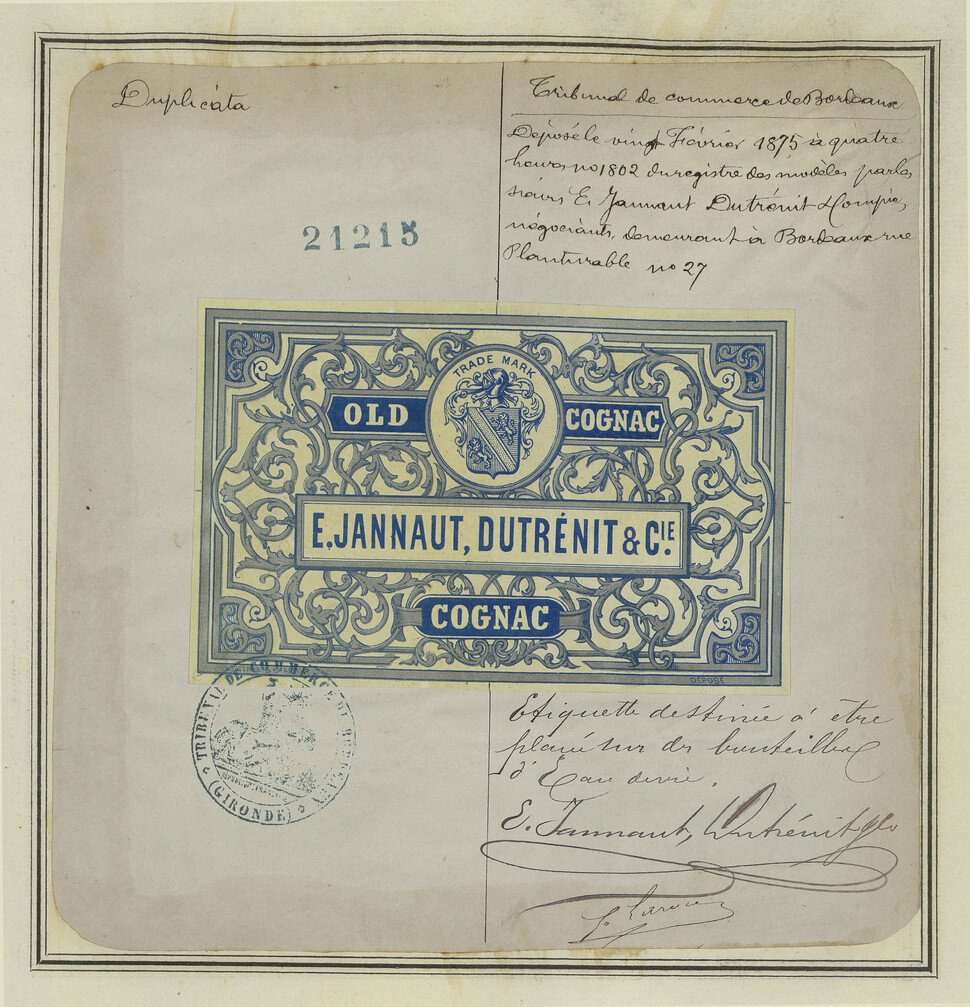 Duplicata
Tribunal de commerce de Bordeaux
Déposé le vingt Février 1875 à quatre
heures no 1802 du registre des modèles par les
sieurs E. Jannaut Dutrénit & Compie,
négociants, demeurant à Bordeaux rue
Planturable no 27
21215
TRADE MARK
OLD COGNAC
E. JANNAUT, DUTRÉNIT & CIE.
COGNAC
DÉPOSÉ
TRIBUNAL DE COMMERCE DE BORDEAUX
(GIRONDE)
Etiquette destinée à être
placée sur des bouteilles
d'Eau de vie.
E. Jannaut, Dutrénit